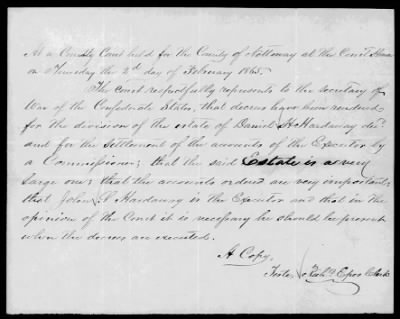 At a County Court held for the County of Nottoway at the Court House
on Thursday the 2d day of February 1865.
The court respectfully represents to the Secretary of
War of the Confederate States, that decrees have been rendered
for the division of the estate of Daniel H Hardaway decd
and for the settlement of the accounts of the Executor by
a Commissioner; that the said estate is a very
large one; that the accounts ordered are very important;
that John S Hardaway is the Executor and that in the
opinion of the Court it is necessary he should be present
when the decrees are executed.
A Copy,
Teste, Richd Epes Clerk